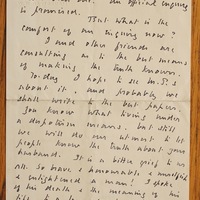 is promised.
But what is the
comfort of an inquiry now?
I and other friends are
consulting as to the best means
of making the truth known.
To-day I hope to see Mr.
about it, and probably we
shall write to the papers.
You know what living under
a despotism means, but still
we will do our utmost to let
people know the truth about your
husband. It is a bitter grief to us
all. So brave & honourable &
enlightened a man! I spoke
of his death & the meaning of his